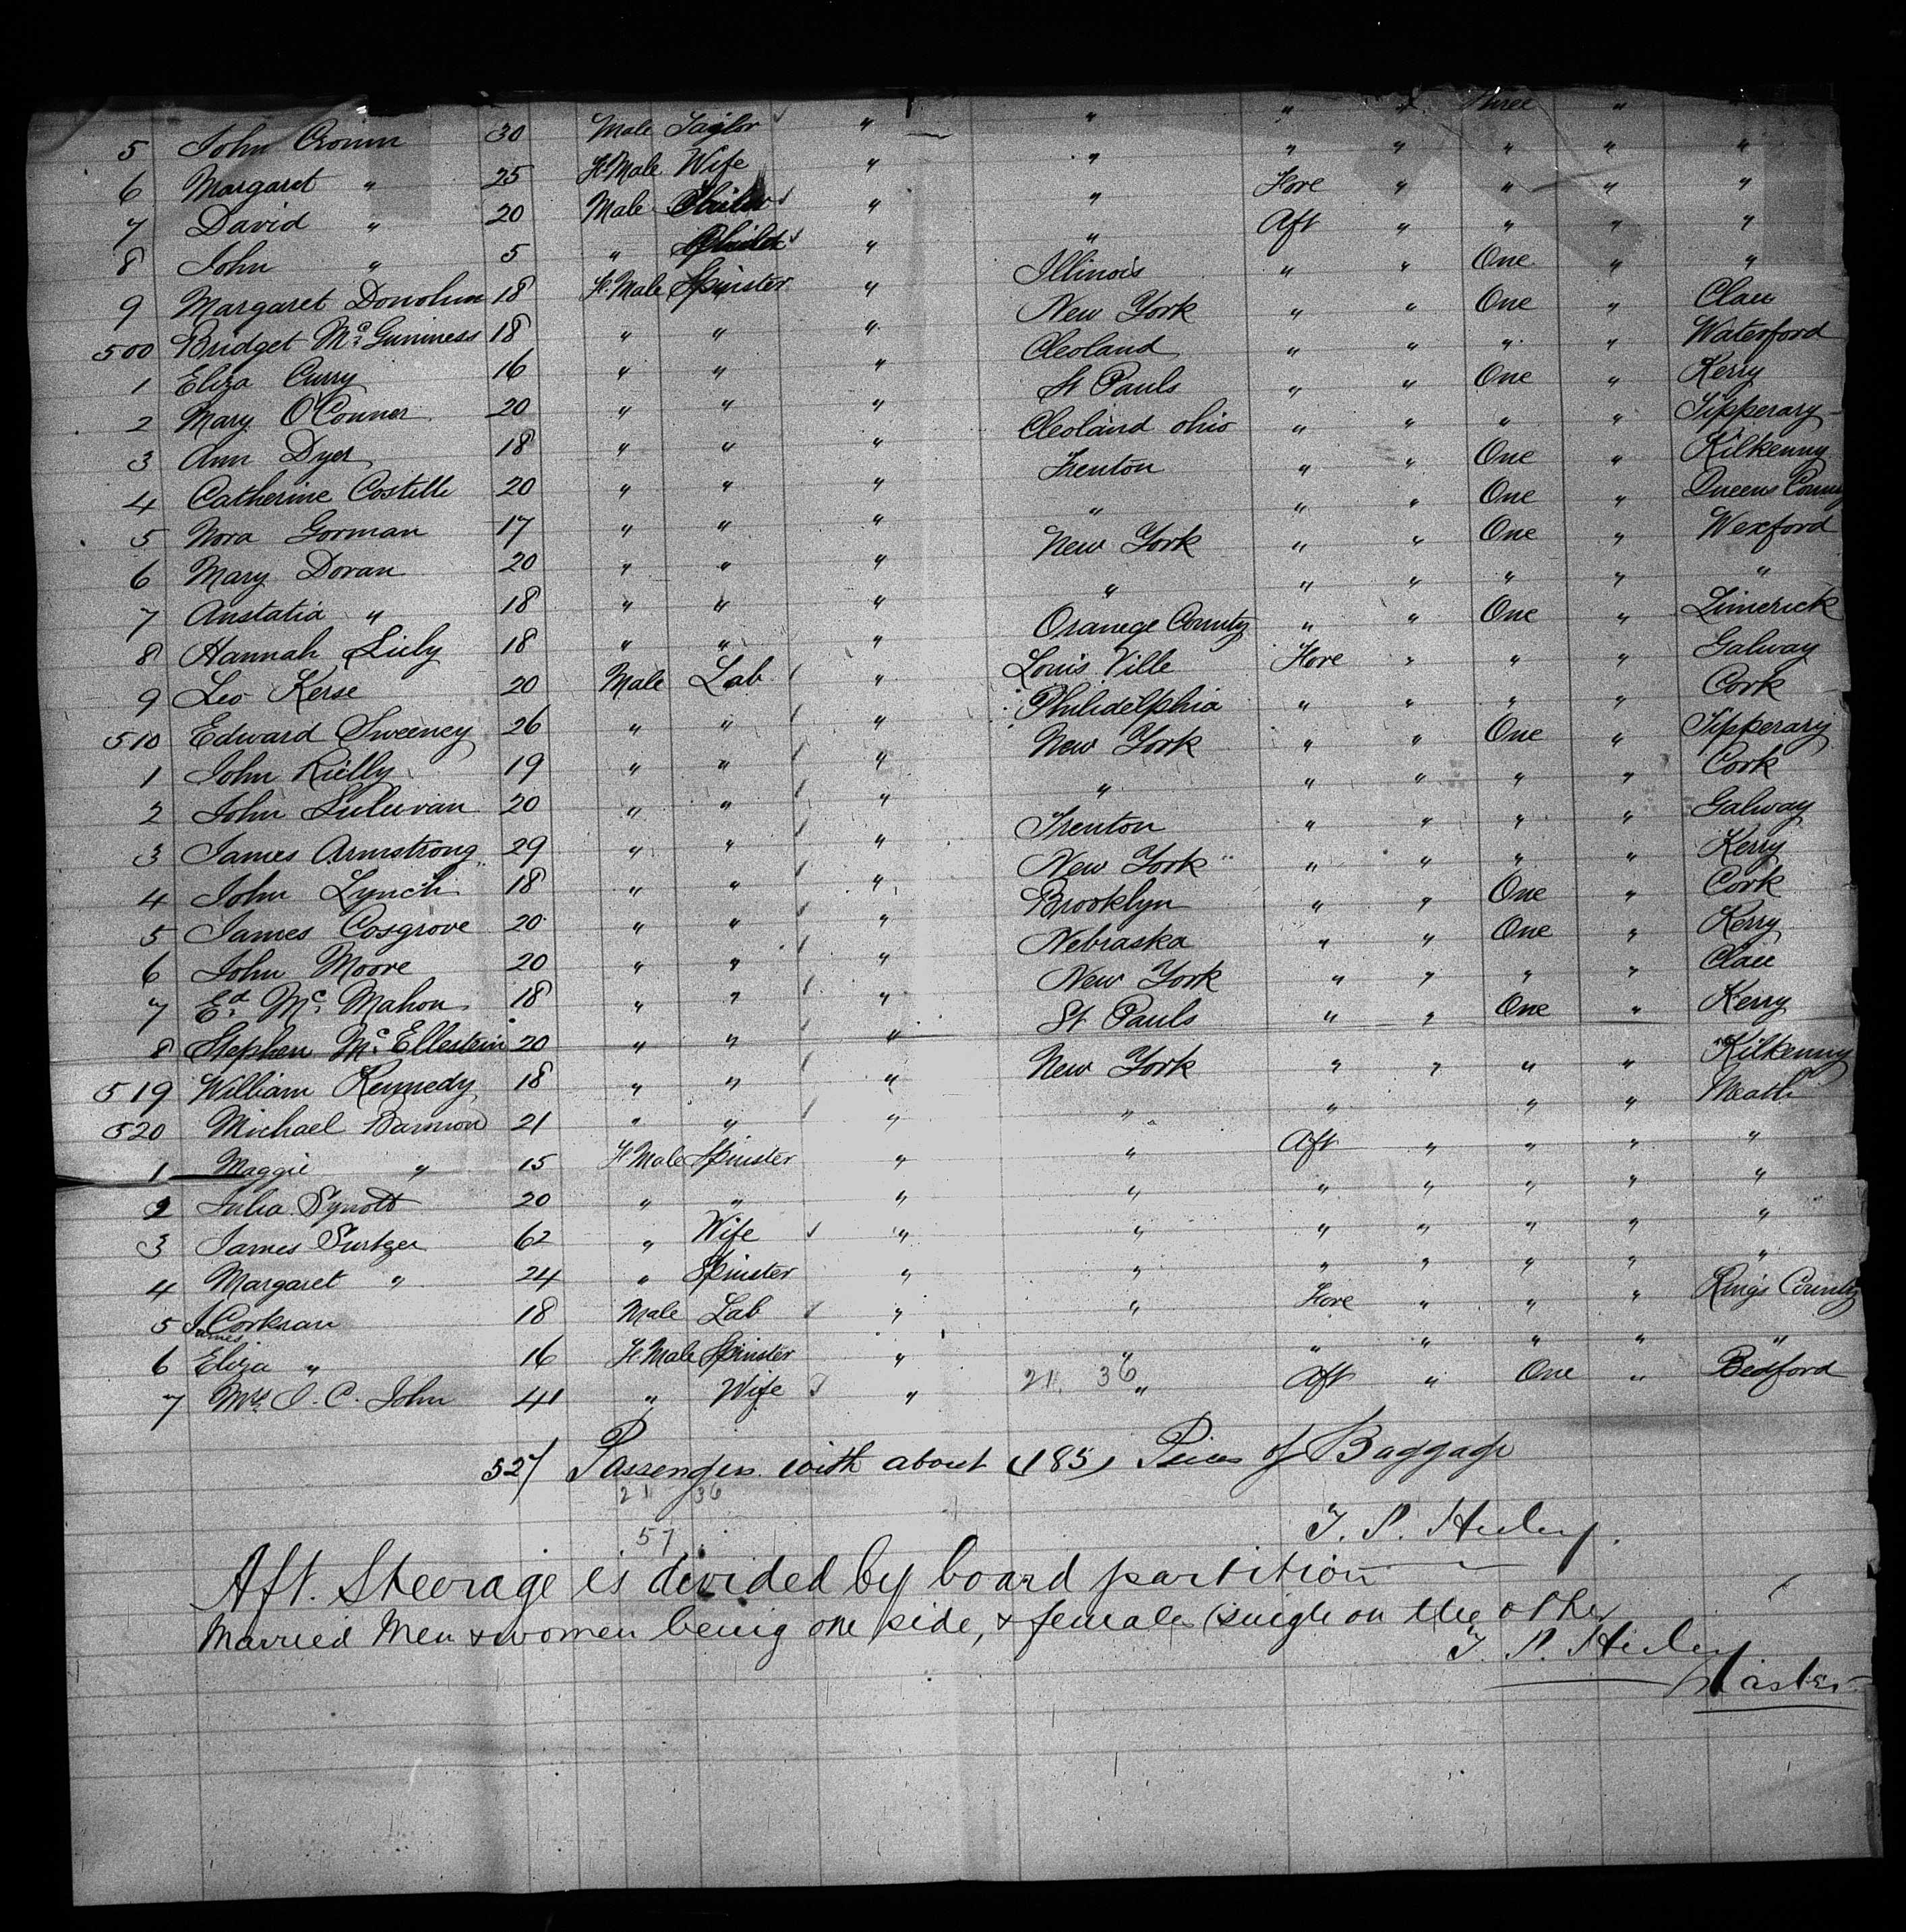 5 John Cronin 30 Male Taylor " " " " Three " "
6 Margaret " 25 Fe Male Wife " " " " " " "
7 David " 20 Male " " Fore " " " "
8 John " 5 " " " Aft " " " "
9 Margaret Donohue 18 Fe. Male Spinster " Illinois " " One " "
500 Bridget Mc Guniness 18 " " " New York " " One " Clare
1 Eliza Curry 16 " " " Cleoland " " " " Waterford
2 Mary O'Conner 20 " " " St Pauls " " One " Kerry
3 Ann Dyer 18 " " " Cleoland ohio " " " " Tipperary
4 Catherine Costille 20 " " " Trenton " " One " Kilkenny
5 Nora Gorman 17 " " " " " " One " Queens County
6 Mary Doran 20 " " " New York " " One " Wexford
7 Anstatia " 18 " " " " " " " " "
8 Hannah 18 " " " Oranege County " " One " Limerick
9 Leo Kerse 20 Male Lab " Louis Ville Fore " " " Galway
510 Edward Sweeney 26 " " " Philidelphia " " " " Cork
1 John Rielly 19 " " " New York " " One " Tipperary
2 John Suluvan 20 " " " " " " " " Cork
3 James Armstrong 29 " " " Trenton " " " " Galway
4 John Lynch 18 " " " New York " " " " Kerry
5 James Cosgrove 20 " " " Brooklyn " " One " Cork
6 John Moore 20 " " " Nebraska " " One " Kerry
7 Ed. Mc. Mahon 18 " " " New York " " " " Clare
8 Stephen Mc Ellestrim 20 " " " St Pauls " " One " Kerry
519 William Kennedy 18 " " " New York " " " " Kilkenny
520 Michael 21 " " " " " " " Meath
1 Maggie " 15 Fe Male Spinster " " Aft " " " "
2 Julia Synott 20 " " " " " " " " "
3 James 62 " Wife " " " " " " "
4 Margaret " 24 " Spinster " " " " " " "
5 James Corkran 18 Male Lab " " Fore " " " Kings County
6 Eliza " 16 Fe Male Spinster " " " " " " "
7 Mrs. J. C. John 41 " Wife " 21. 36 " Aft " One " Bedford
527 Passengers with about (185) Pieces of Baggage
21 36
57
T. P. Heley
Aft. Steerage is divided by board partition
Married Men & women being one side, & females single on the other
T. P. Heley
Master